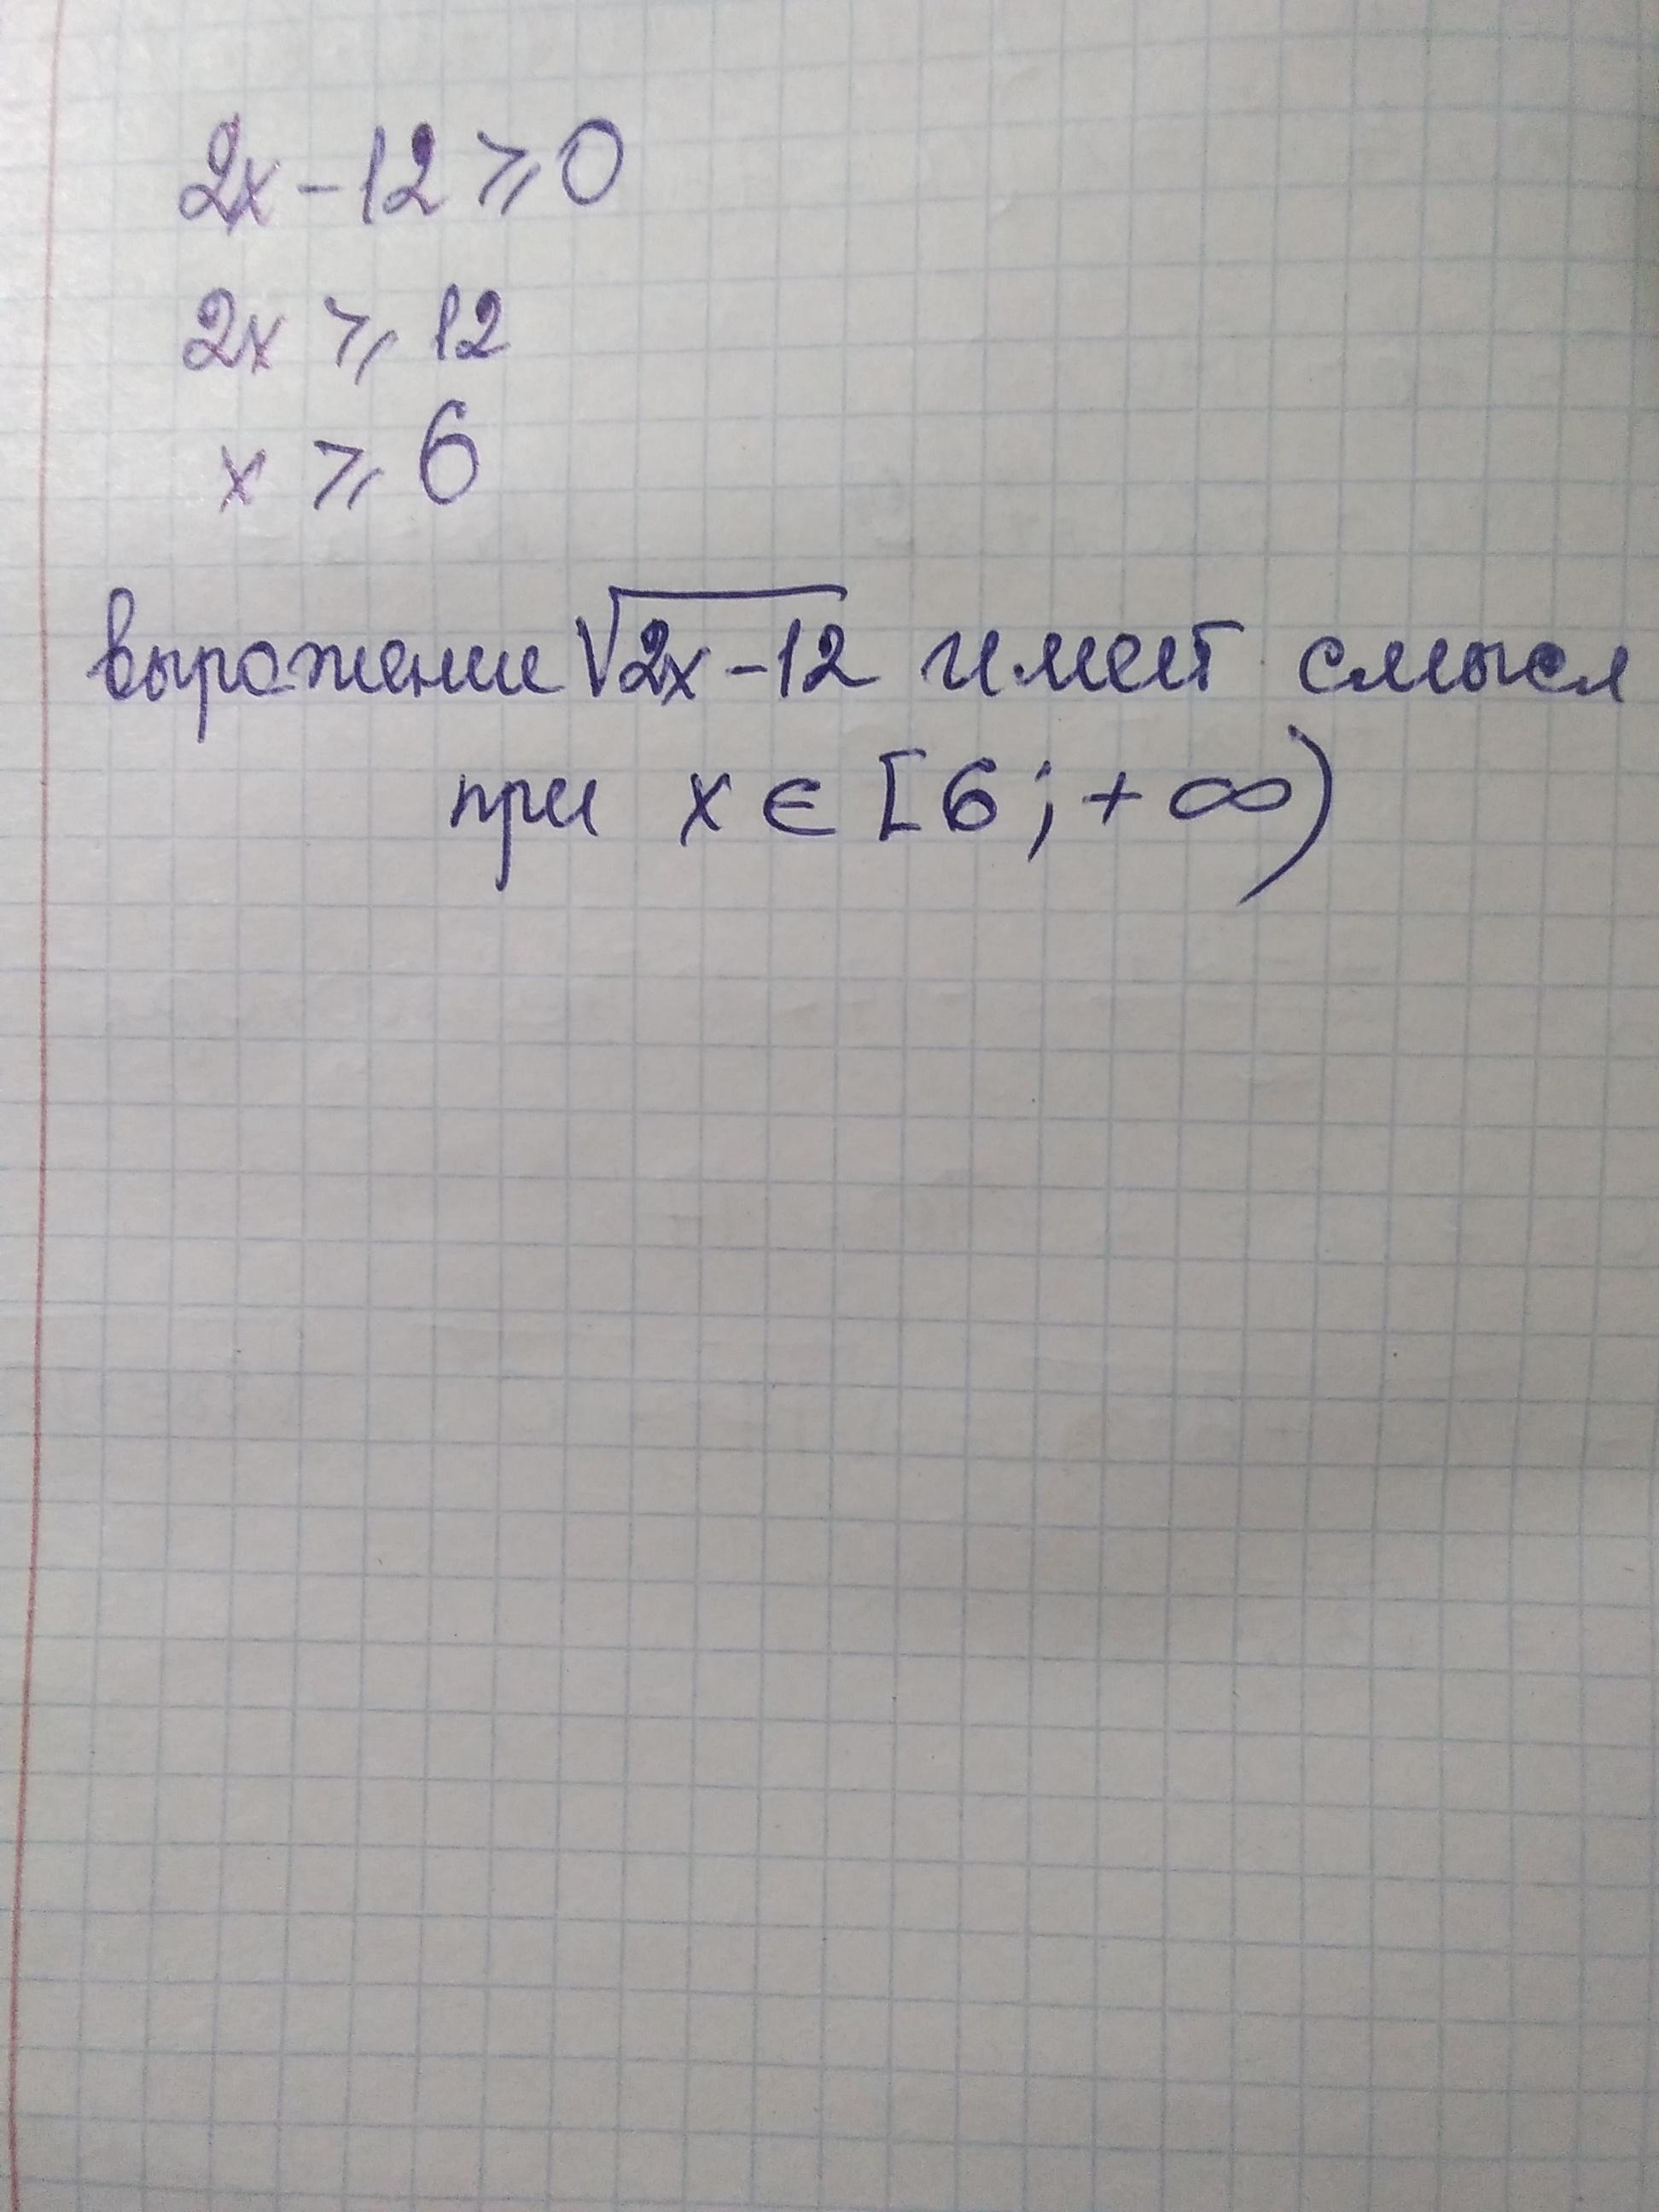 2x - 12 ⩾ 0
2x ⩾ 12
x ⩾ 6
выражение √(2x-12) имеет смысл
при x ∈ [6; +∞)